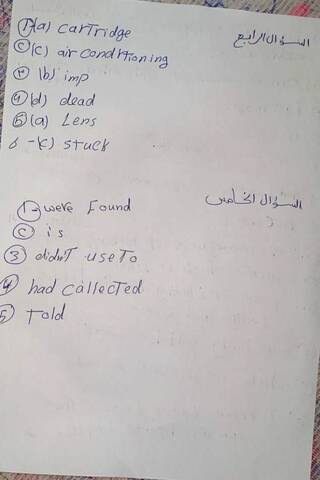 السؤال الرابع
1 (a) cartridge
2 (c) air conditioning
3 (b) imp
4 (d) dead
5 (a) Lens
6 - (c) stuck
السؤال الخامس
1- were Found
2 is
3 didn't use to
4 had callected
5 Told